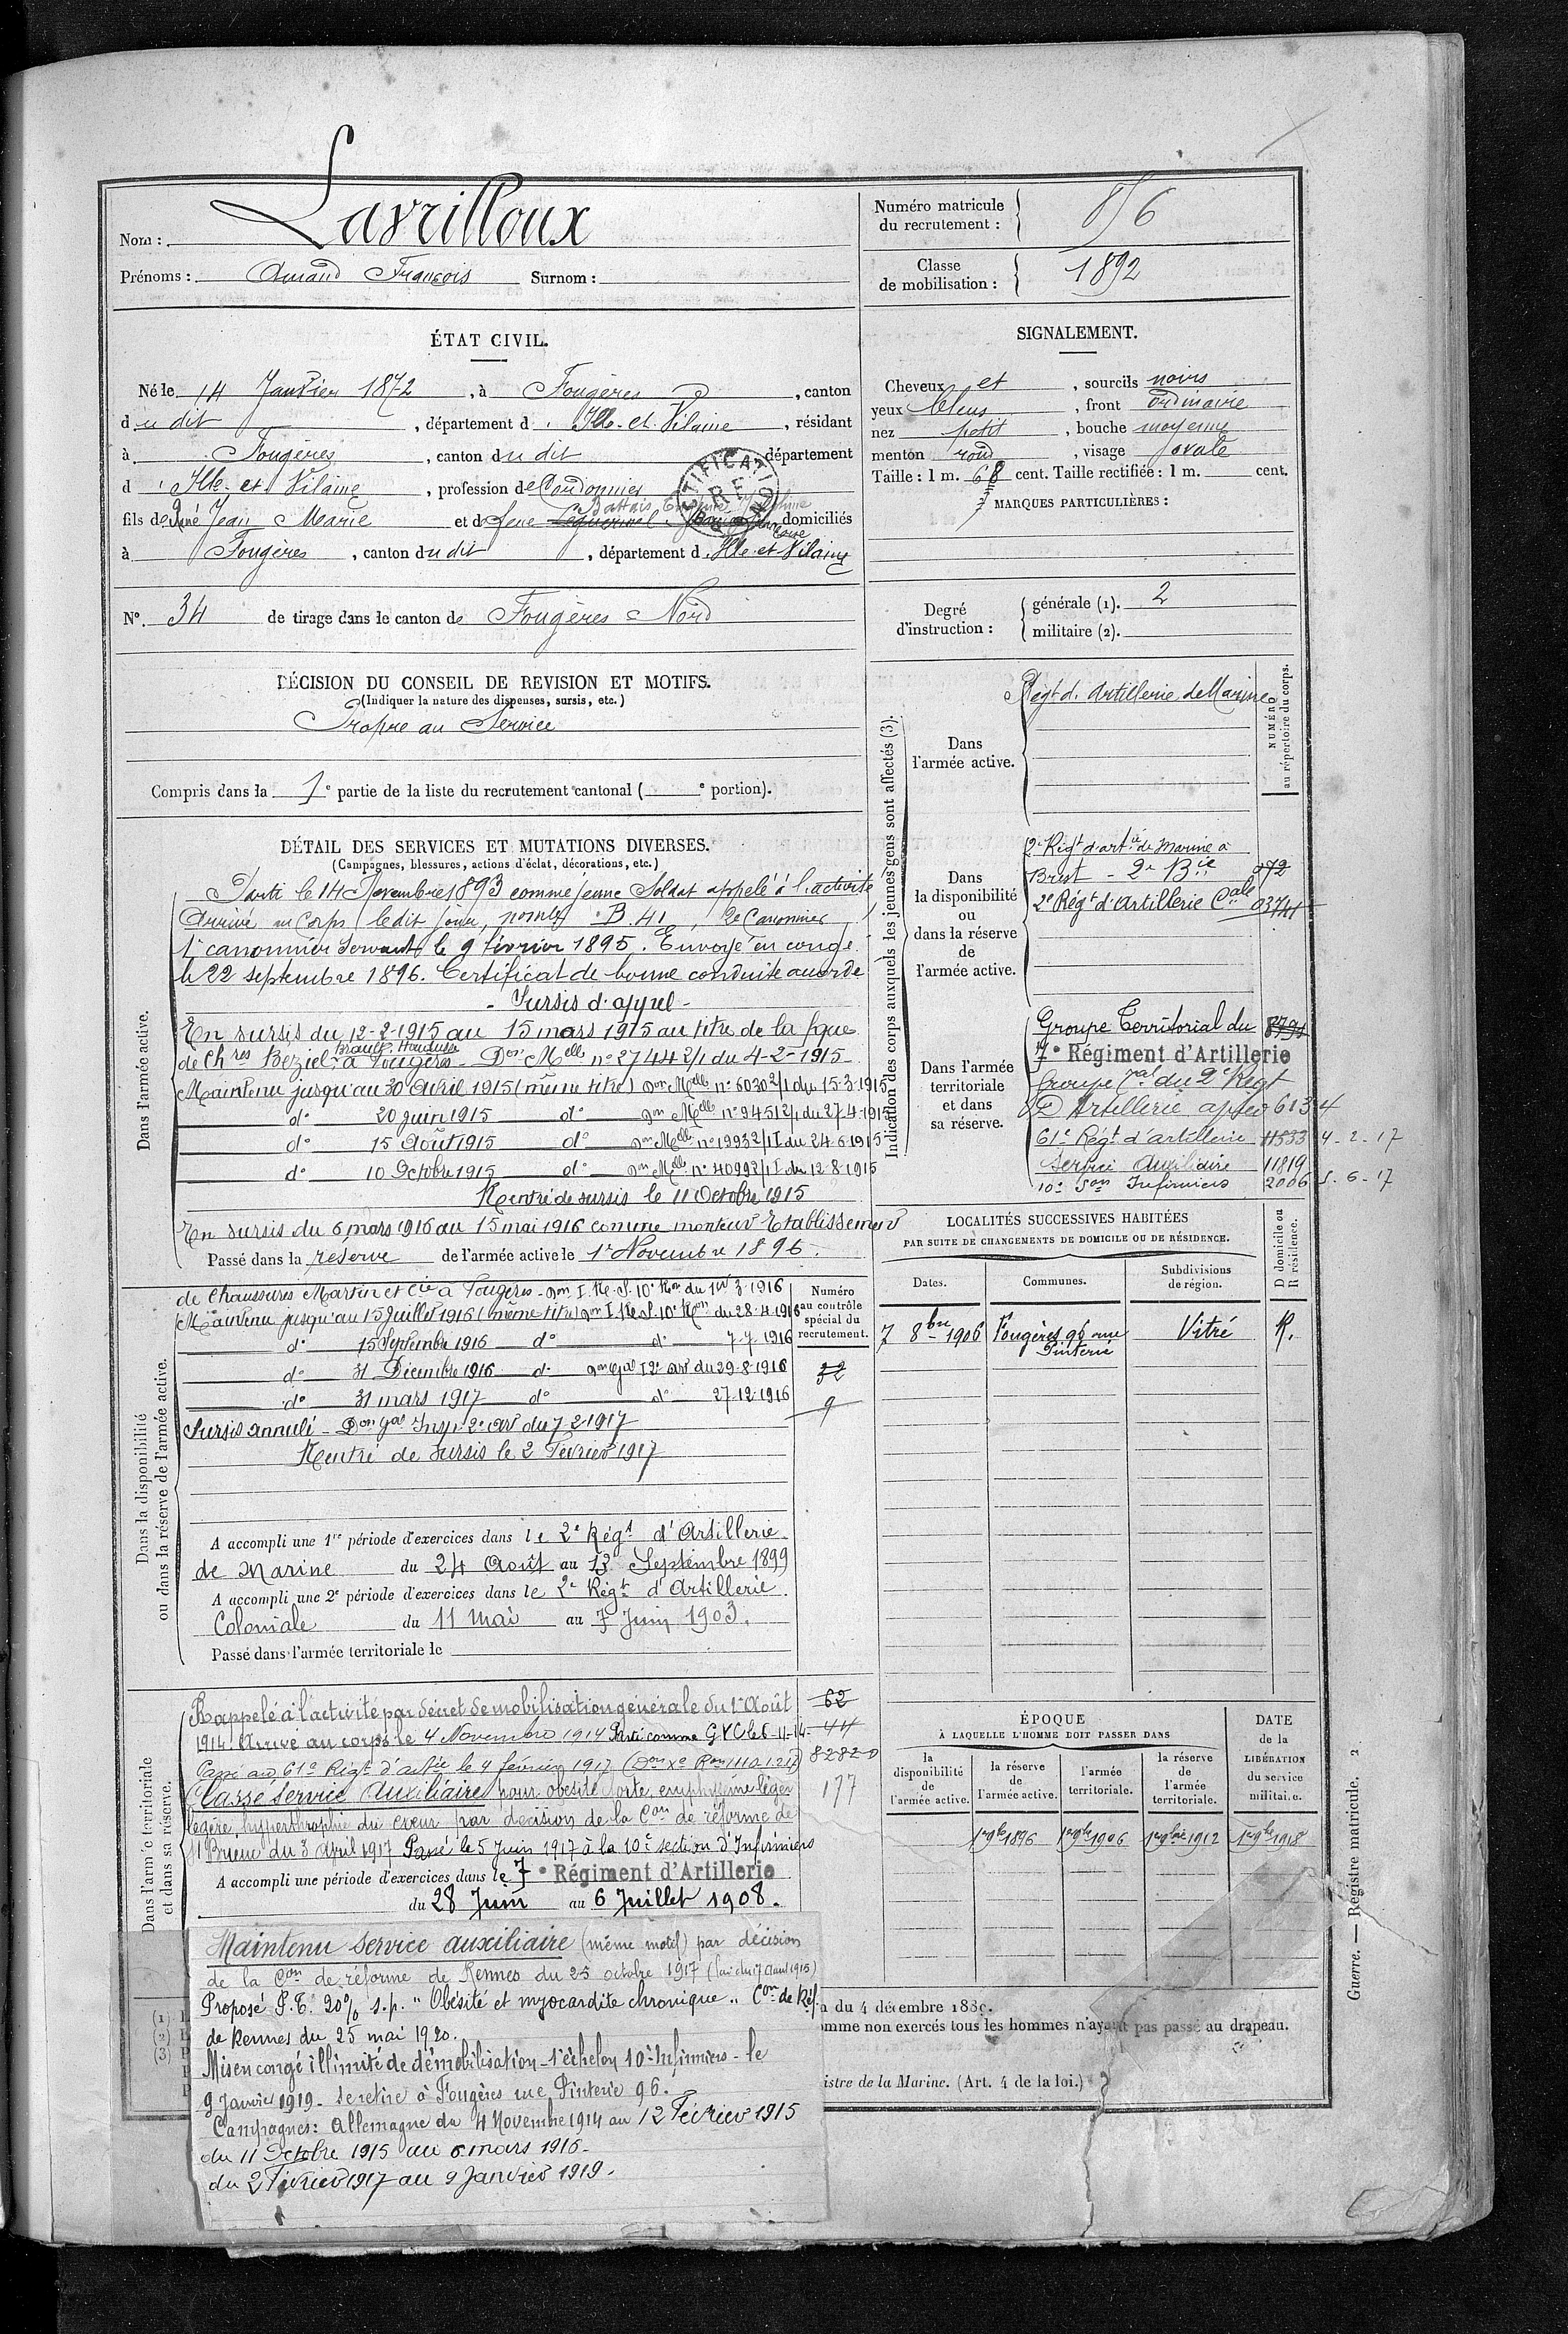 Nom : Lavrilloux
Prénoms : Amand François Surnom :
Numéro matricule du recrutement : 856
Classe de mobilisation : 1892
ÉTAT CIVIL.
Né le 14 Janvier 1872, à Fougères, canton
du dit, département d'Ille-et-Vilaine, résidant
à Fougères, canton du dit département
d'Ille-et-Vilaine, profession de Cordonnier
fils de René Jean Marie et de domiciliés
à Fougères, canton du dit, département d'Ille-et-Vilaine
N° 34 de tirage dans le canton de Fougères Nord
SIGNALEMENT.
Cheveux et, sourcils noirs
yeux bleus, front ordinaire
nez petit, bouche moyenne
menton rond, visage ovale
Taille : 1 m. 68 cent. Taille rectifiée : 1 m. cent.
MARQUES PARTICULIÈRES :
Degré d'instruction : générale (1). 2
militaire (2).
DÉCISION DU CONSEIL DE REVISION ET MOTIFS.
(Indiquer la nature des dispenses, sursis, etc.)
Propre au Service
Compris dans la 1e partie de la liste du recrutement cantonal ( e portion).
DÉTAIL DES SERVICES ET MUTATIONS DIVERSES.
(Campagnes, blessures, actions d'éclat, décorations, etc.)
Dans l'armée active.
Parti le 14 Novembre 1893 comme jeune Soldat appelé à l'activité
Arrivé au Corps ledit jour, 2e Canonnier
1er canonnier servant le 9 février 1895. Envoyé en congé
le 22 septembre 1896. Certificat de bonne conduite accordé
- Sursis d'appel -
En sursis du 12-2-1915 au 15 mars 1915 au titre de la fque
de Chres Beziel à Fougères - Don Melle n° 2744 2/1 du 4-2-1915
Maintenu jusqu'au 30 Avril 1915 (même titre) Don Melle n° 6030 2/1 du 15-3-1915
d° 20 juin 1915 d° Don Melle n° 9451 2/1 du 27-4-1915
d° 15 Août 1915 d° Don Melle n° 19932/1 I du 24-6-1915
d° 10 Octobre 1915 d° Don Melle n° 40992/1 I du 12-8-1915
Rentré de sursis le 11 Octobre 1915
En sursis du 6 mars 1916 au 15 mai 1916 comme monteur Etablissement
Passé dans la réserve de l'armée active le 1er Novembre 1896.
Dans la disponibilité ou dans la réserve de l'armée active.
de Chaussures Martin et Cie à Fougères - Don I.Re.S. 10e Ron du 1er 3-1916
Maintenu jusqu'au 15 Juillet 1916 (même titre) Don I.Re.S. 10e Ron du 28-4-1916
d° 15 Septembre 1916 d° d° 7-7-1916
d° 31 Décembre 1916 d° Don Gal I 2e Art du 29-8-1916
d° 31 mars 1917 d° d° 27-12-1916
Sursis annulé - Don Gal Insp 2e Art du 7-2-1917
Rentré de sursis le 2 Février 1917
Numéro au contrôle spécial du recrutement.
32
9
A accompli une 1re période d'exercices dans le 2e Régt d'Artillerie
de Marine du 24 Août au 13 Septembre 1899
A accompli une 2e période d'exercices dans le 2e Régt d'Artillerie
Coloniale du 11 Mai au 7 Juin 1903.
Passé dans l'armée territoriale le
Dans l'armée territoriale et dans sa réserve.
Rappelé à l'activité par décret de mobilisation générale du 1er Août 62
1914 Arrivé au corps le 4 Novembre 1914 Parti comme GVC le 6-11-14 44
Passé au 61e Régt d'artie le 4 février 1917 8282
Classé service Auxiliaire pour obésité forte, emphysème léger 177
légère hypertrophie du coeur par décision de la Con de réforme de
St Brieuc du 3 Avril 1917 Passé le 5 Juin 1917 à la 10e section d'Infirmiers
A accompli une période d'exercices dans le 7e Régiment d'Artillerie
du 28 Juin au 6 Juillet 1908.
Maintenu service auxiliaire (même motif) par décision
de la Con de réforme de Rennes du 25 octobre 1917 (Loi du 17 Aout 1915)
Proposé P.T. 20% s.p. "Obésité et myocardite chronique" Con de Réf.
de Rennes du 25 mai 1920.
Mis en congé illimité de démobilisation - 1er échelon 10e Infirmiers - le
9 Janvier 1919 - se retire à Fougères rue Pinterie 96.
Campagnes : Allemagne du 4 Novembre 1914 au 12 Février 1915
du 11 Octobre 1915 au 6 mars 1916 -
du 2 Février 1917 au 9 Janvier 1919.
Indication des corps auxquels les jeunes gens sont affectés (3).
NUMÉRO au répertoire du corps.
Dans l'armée active.
Régt d'Artillerie de Marine
Dans la disponibilité ou dans la réserve de l'armée active.
2e Régt d'artie de Marine à
Brest - 2e Bie 272
2e Régt d'Artillerie Cale 03741
Dans l'armée territoriale et dans sa réserve.
Groupe Territorial du
7e Régiment d'Artillerie
Groupe Tal du 2e Régt
D'Artillerie à pied 6134
61e Régt d'artillerie 11533 4-2-17
Service Auxiliaire 11819
10e Son Infirmiers 2006 5-6-17
LOCALITÉS SUCCESSIVES HABITÉES
PAR SUITE DE CHANGEMENTS DE DOMICILE OU DE RÉSIDENCE.
Dates. Communes. Subdivisions de région. D domicile ou R résidence.
7 8bre 1906 Fougères 96 rue Pinterie Vitré R.
ÉPOQUE
À LAQUELLE L'HOMME DOIT PASSER DANS
la disponibilité de l'armée active. la réserve de l'armée active. l'armée territoriale. la réserve de l'armée territoriale.
DATE de la LIBÉRATION du service militaire.
1er 9bre 1896 1er 9bre 1906 1er 9bre 1912 1er 9bre 1918
du 4 décembre 1889.
omme non exercés tous les hommes n'ayant pas passé au drapeau.
istre de la Marine. (Art. 4 de la loi.)
Guerre. — Registre matricule. 2